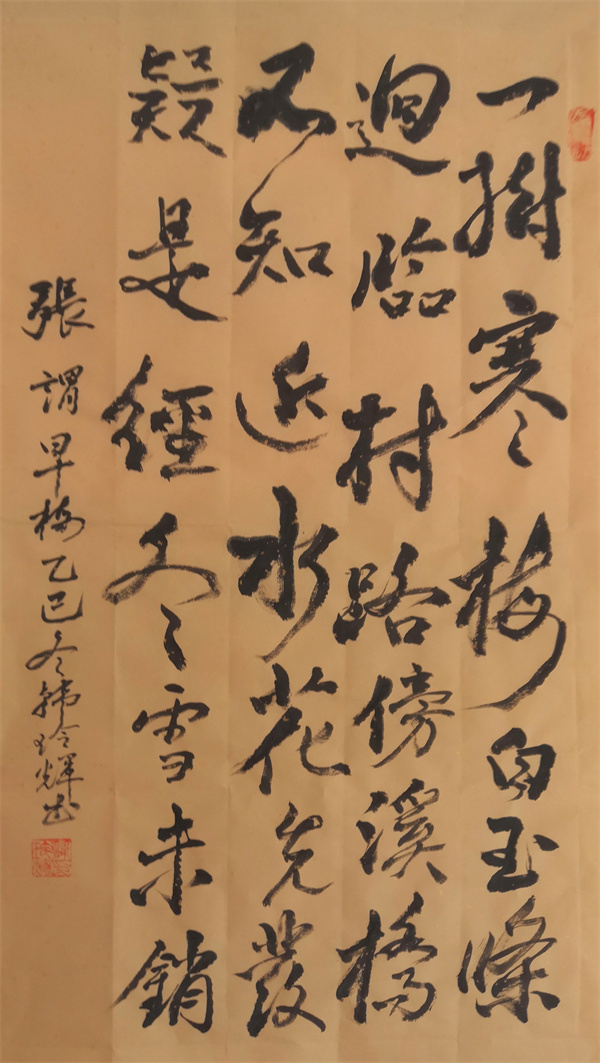 一樹寒梅白玉條
迥臨村路傍溪橋
不知近水花先發
疑是經冬雪未銷
張謂早梅乙巳冬韩玲輝书